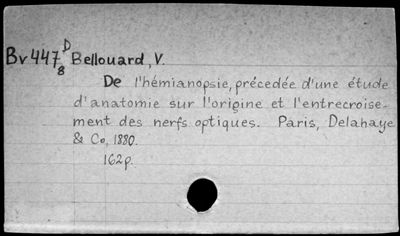 Bv447 D 8 Bellouard, V.
De l'hémianopsie, précedée d'une étude
d'anatomie sur l'origine et l'entrecroise-
ment des nerfs optiques. Paris, Delahaye
& Co, 1880.
162p.